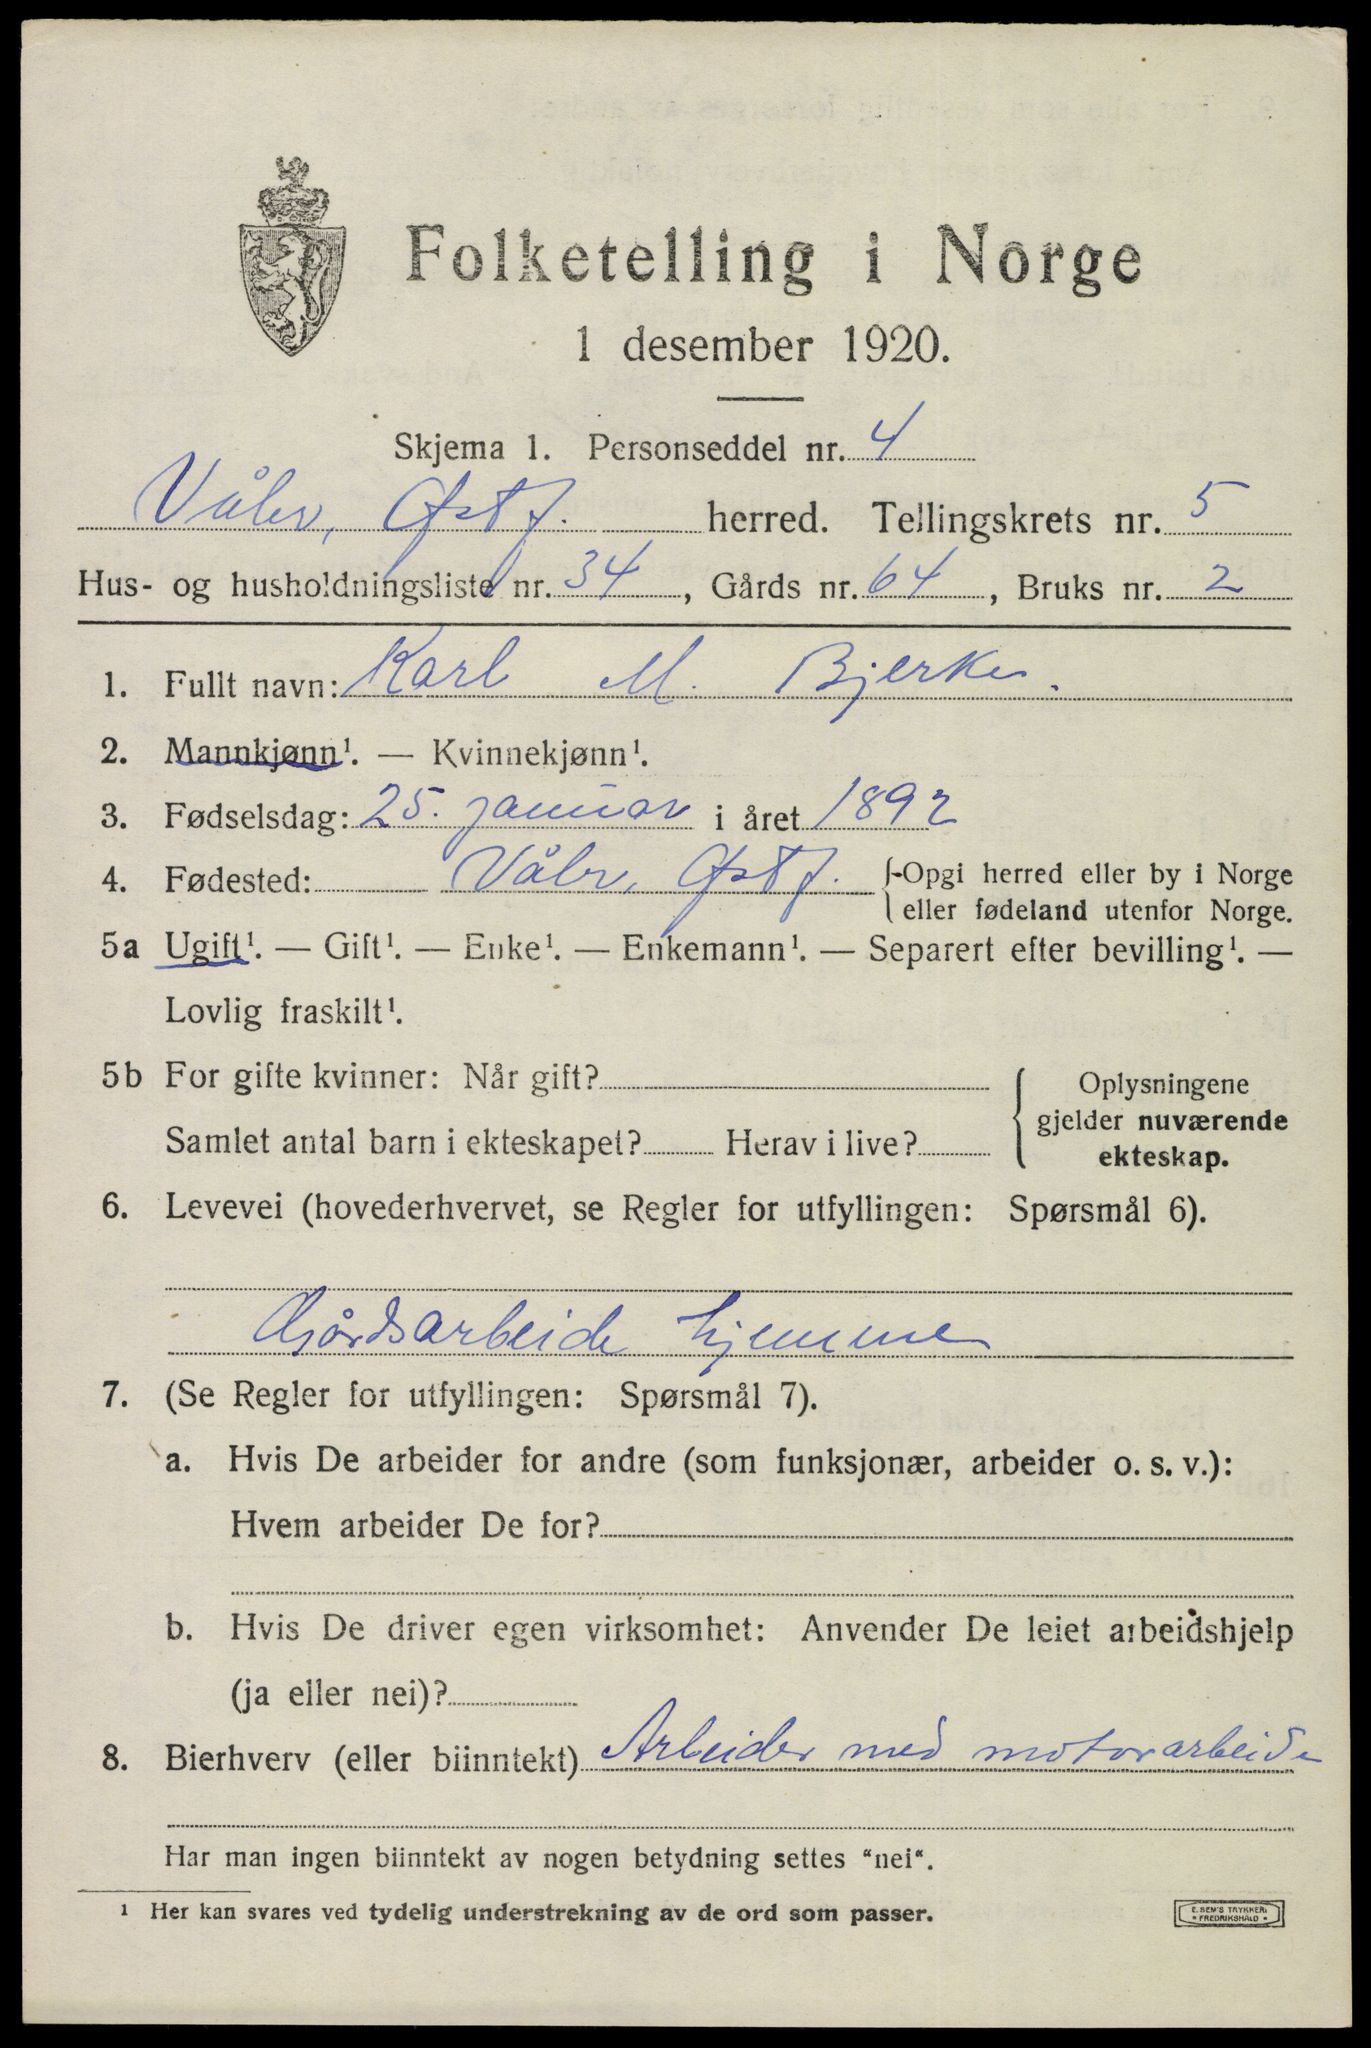 Folketelling i Norge
1 desember 1920.
Skjema 1. Personseddel nr. 4
Våler, Østf. herred. Tellingskrets nr. 5
Hus- og husholdningsliste nr. 34, Gårds nr. 64, Bruks nr. 2
1. Fullt navn: Karl M. Bjerke.
2. Mannkjønn¹. — Kvinnekjønn¹.
3. Fødselsdag: 25. januar i året 1892
4. Fødested: Våler, Østf. {-Opgi herred eller by i Norge
eller fødeland utenfor Norge.
5a Ugift¹. — Gift¹. — Enke¹. — Enkemann¹. — Separert efter bevilling¹. —
Lovlig fraskilt¹.
5b For gifte kvinner: Når gift? Oplysningene
gjelder nuværende
Samlet antal barn i ekteskapet? Herav i live?
ekteskap.
6. Levevei (hovederhvervet, se Regler for utfyllingen: Spørsmål 6).
Gårdsarbeide hjemme
7. (Se Regler for utfyllingen: Spørsmål 7).
a. Hvis De arbeider for andre (som funksjonær, arbeider o. s. v.):
Hvem arbeider De for?
b. Hvis De driver egen virksomhet: Anvender De leiet arbeidshjelp
(ja eller nei)?
8. Bierhverv (eller biinntekt) Arbeider med motorarbeide
Har man ingen biinntekt av nogen betydning settes "nei".
¹ Her kan svares ved tydelig understrekning av de ord som passer.
E. SEM'S TRYKKERI
* FREDRIKSHALD *